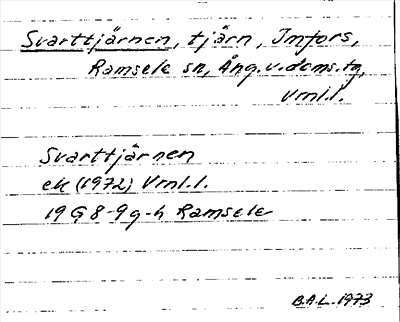 Svarttjärnen, tjärn, Imfors,
Ramsele sn, Ång.v.doms.tg,
Vrml.l.
Svarttjärnen
ek (1972) Vrml.l.
19 G 8-9 g-h Ramsele
B.A.L. 1973